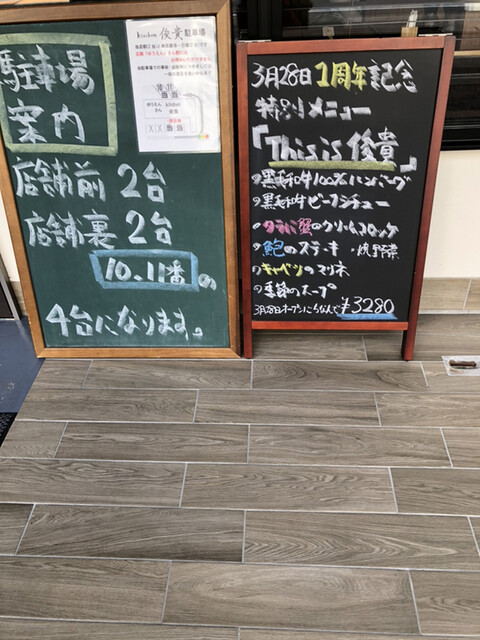 駐車場
案内
店舗前 2台
店舗裏 2台
10、11番の
4台になります。
kitchen 俊貴 駐車場
3月28日 1周年記念
特別メニュー
「This is 俊貴」
黒毛和牛100%ハンバーグ
黒毛和牛ビーフシチュー
タラバ蟹のクリームコロッケ
鮑のステーキ
キャベツのマリネ
季節のスープ
3月28日オープンにちなんで ¥3280